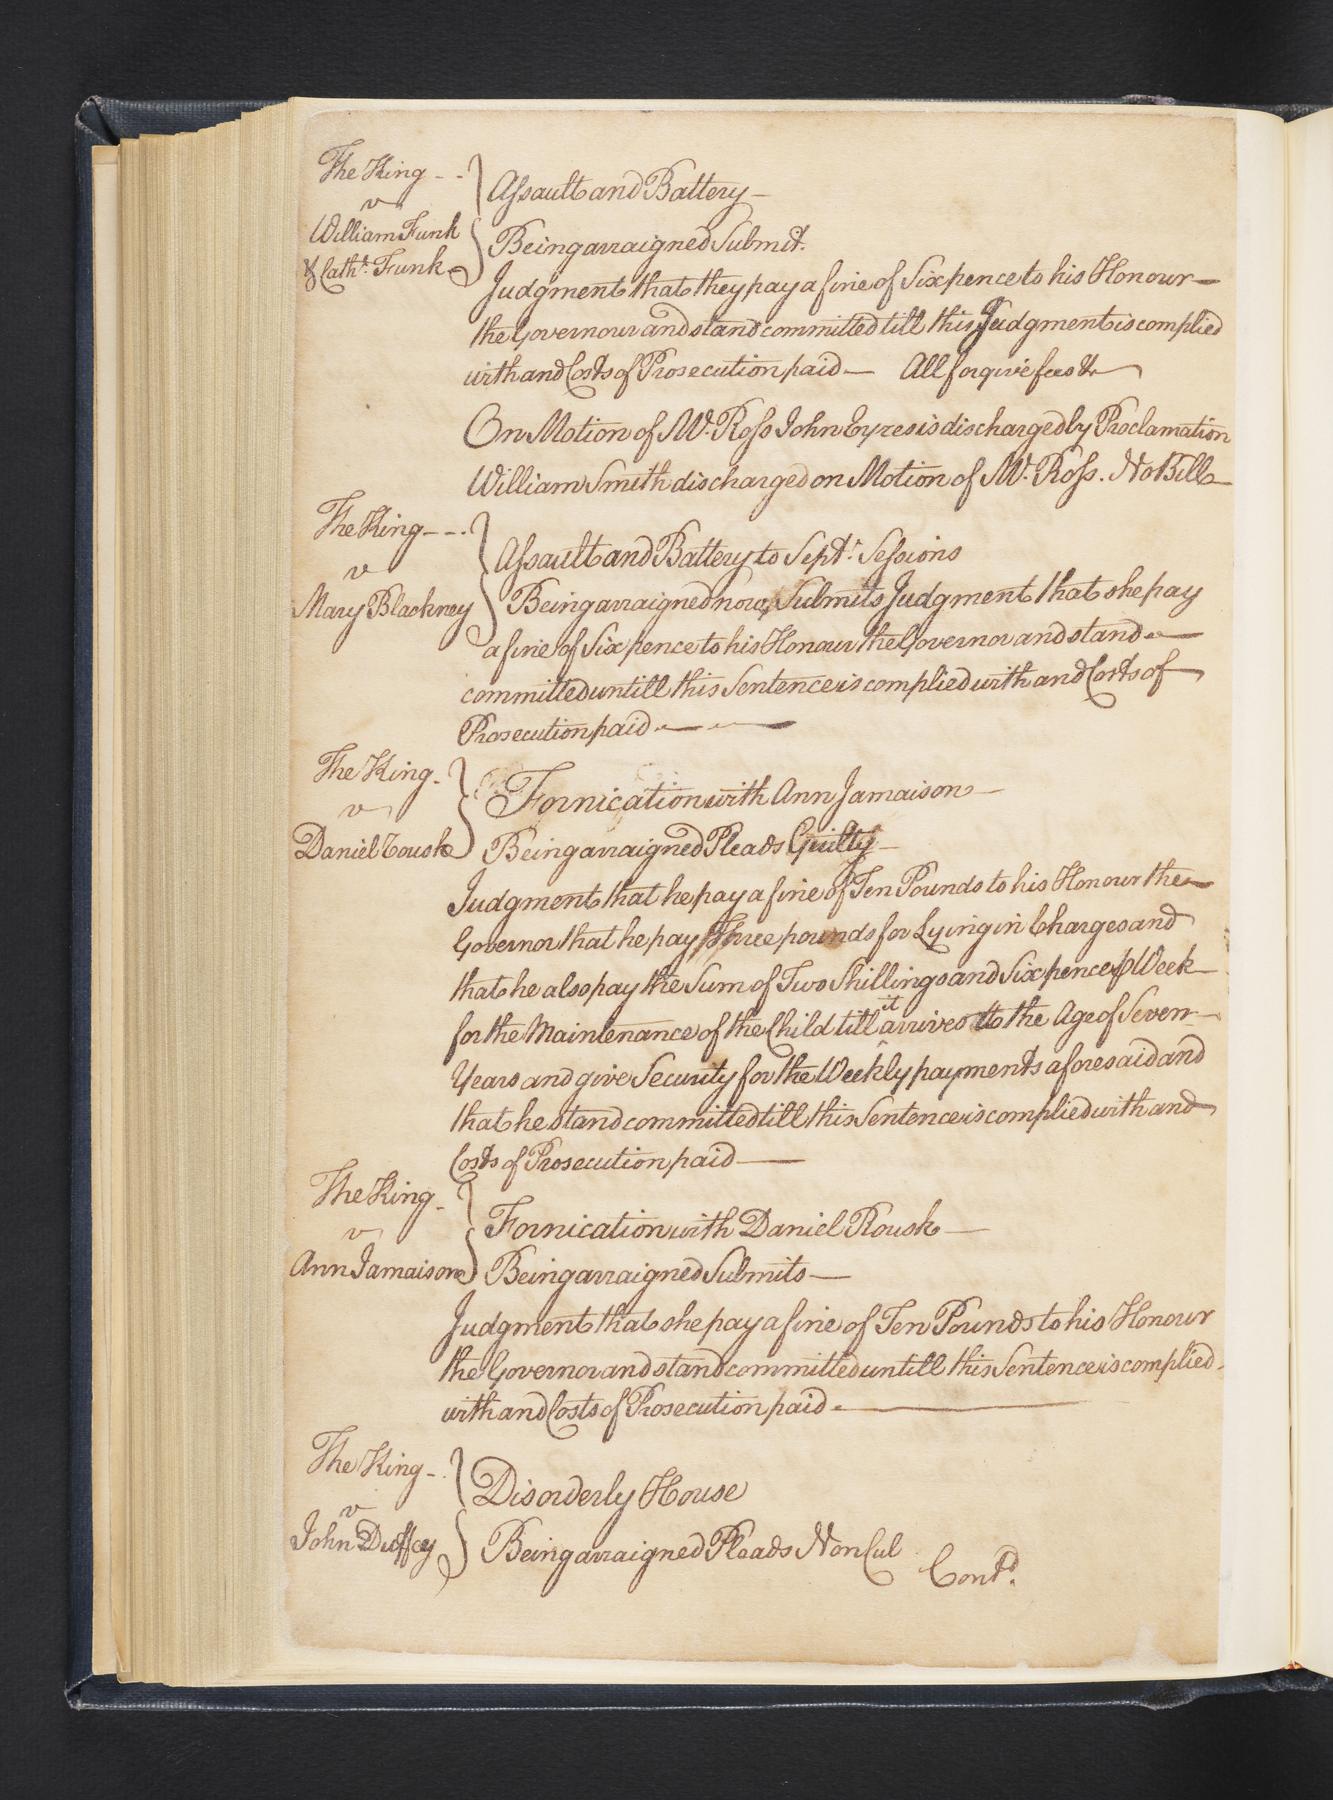 The King - -
v
William Funk
& Cath:e Funk
Assault and Battery -
Being arraigned Submit.
Judgment that they pay a fine of Six pence to his Honour -
the Governour and stand committed till this Judgment is complied
with and Costs of Prosecution paid - All forgive fees &c
On Motion of Mr. Ross John Eyres is discharged by Proclamation
William Smith discharged on Motion of Mr. Ross. No Bill
The King - - -
v
Mary Blackney
Assault and Battery to Septr. Sessions
Being arraigned now, Submits Judgment that she pay
a fine of Six pence to his Honour the Governor and stand
committed untill this Sentence is complied with and Costs of
Prosecution paid
The King -
v
Daniel Rousk
Fornication with Ann Jamaison -
Being arraigned Pleads Guilty -
Judgment that he pay a fine of Ten Pounds to his Honour the
Governor that he pay Three pounds for Lying in Charges and
that he also pay the Sum of Two Shillings and Six pence ⅌ Week
for the Maintenance of the Child till it arrives to the Age of Seven
Years and give Security for the Weekly payments aforesaid and
that he stand committed till this Sentence is complied with and
Costs of Prosecution paid -
The King -
v
Ann Jamaison
Fornication with Daniel Rousk -
Being arraigned Submits -
Judgment that she pay a fine of Ten Pounds to his Honour
the Governor and stand committed untill this Sentence is complied
with and Costs of Prosecution paid -
The King -
v
John Duffey
Disorderly House
Being arraigned Pleads Non Cul
Contd.